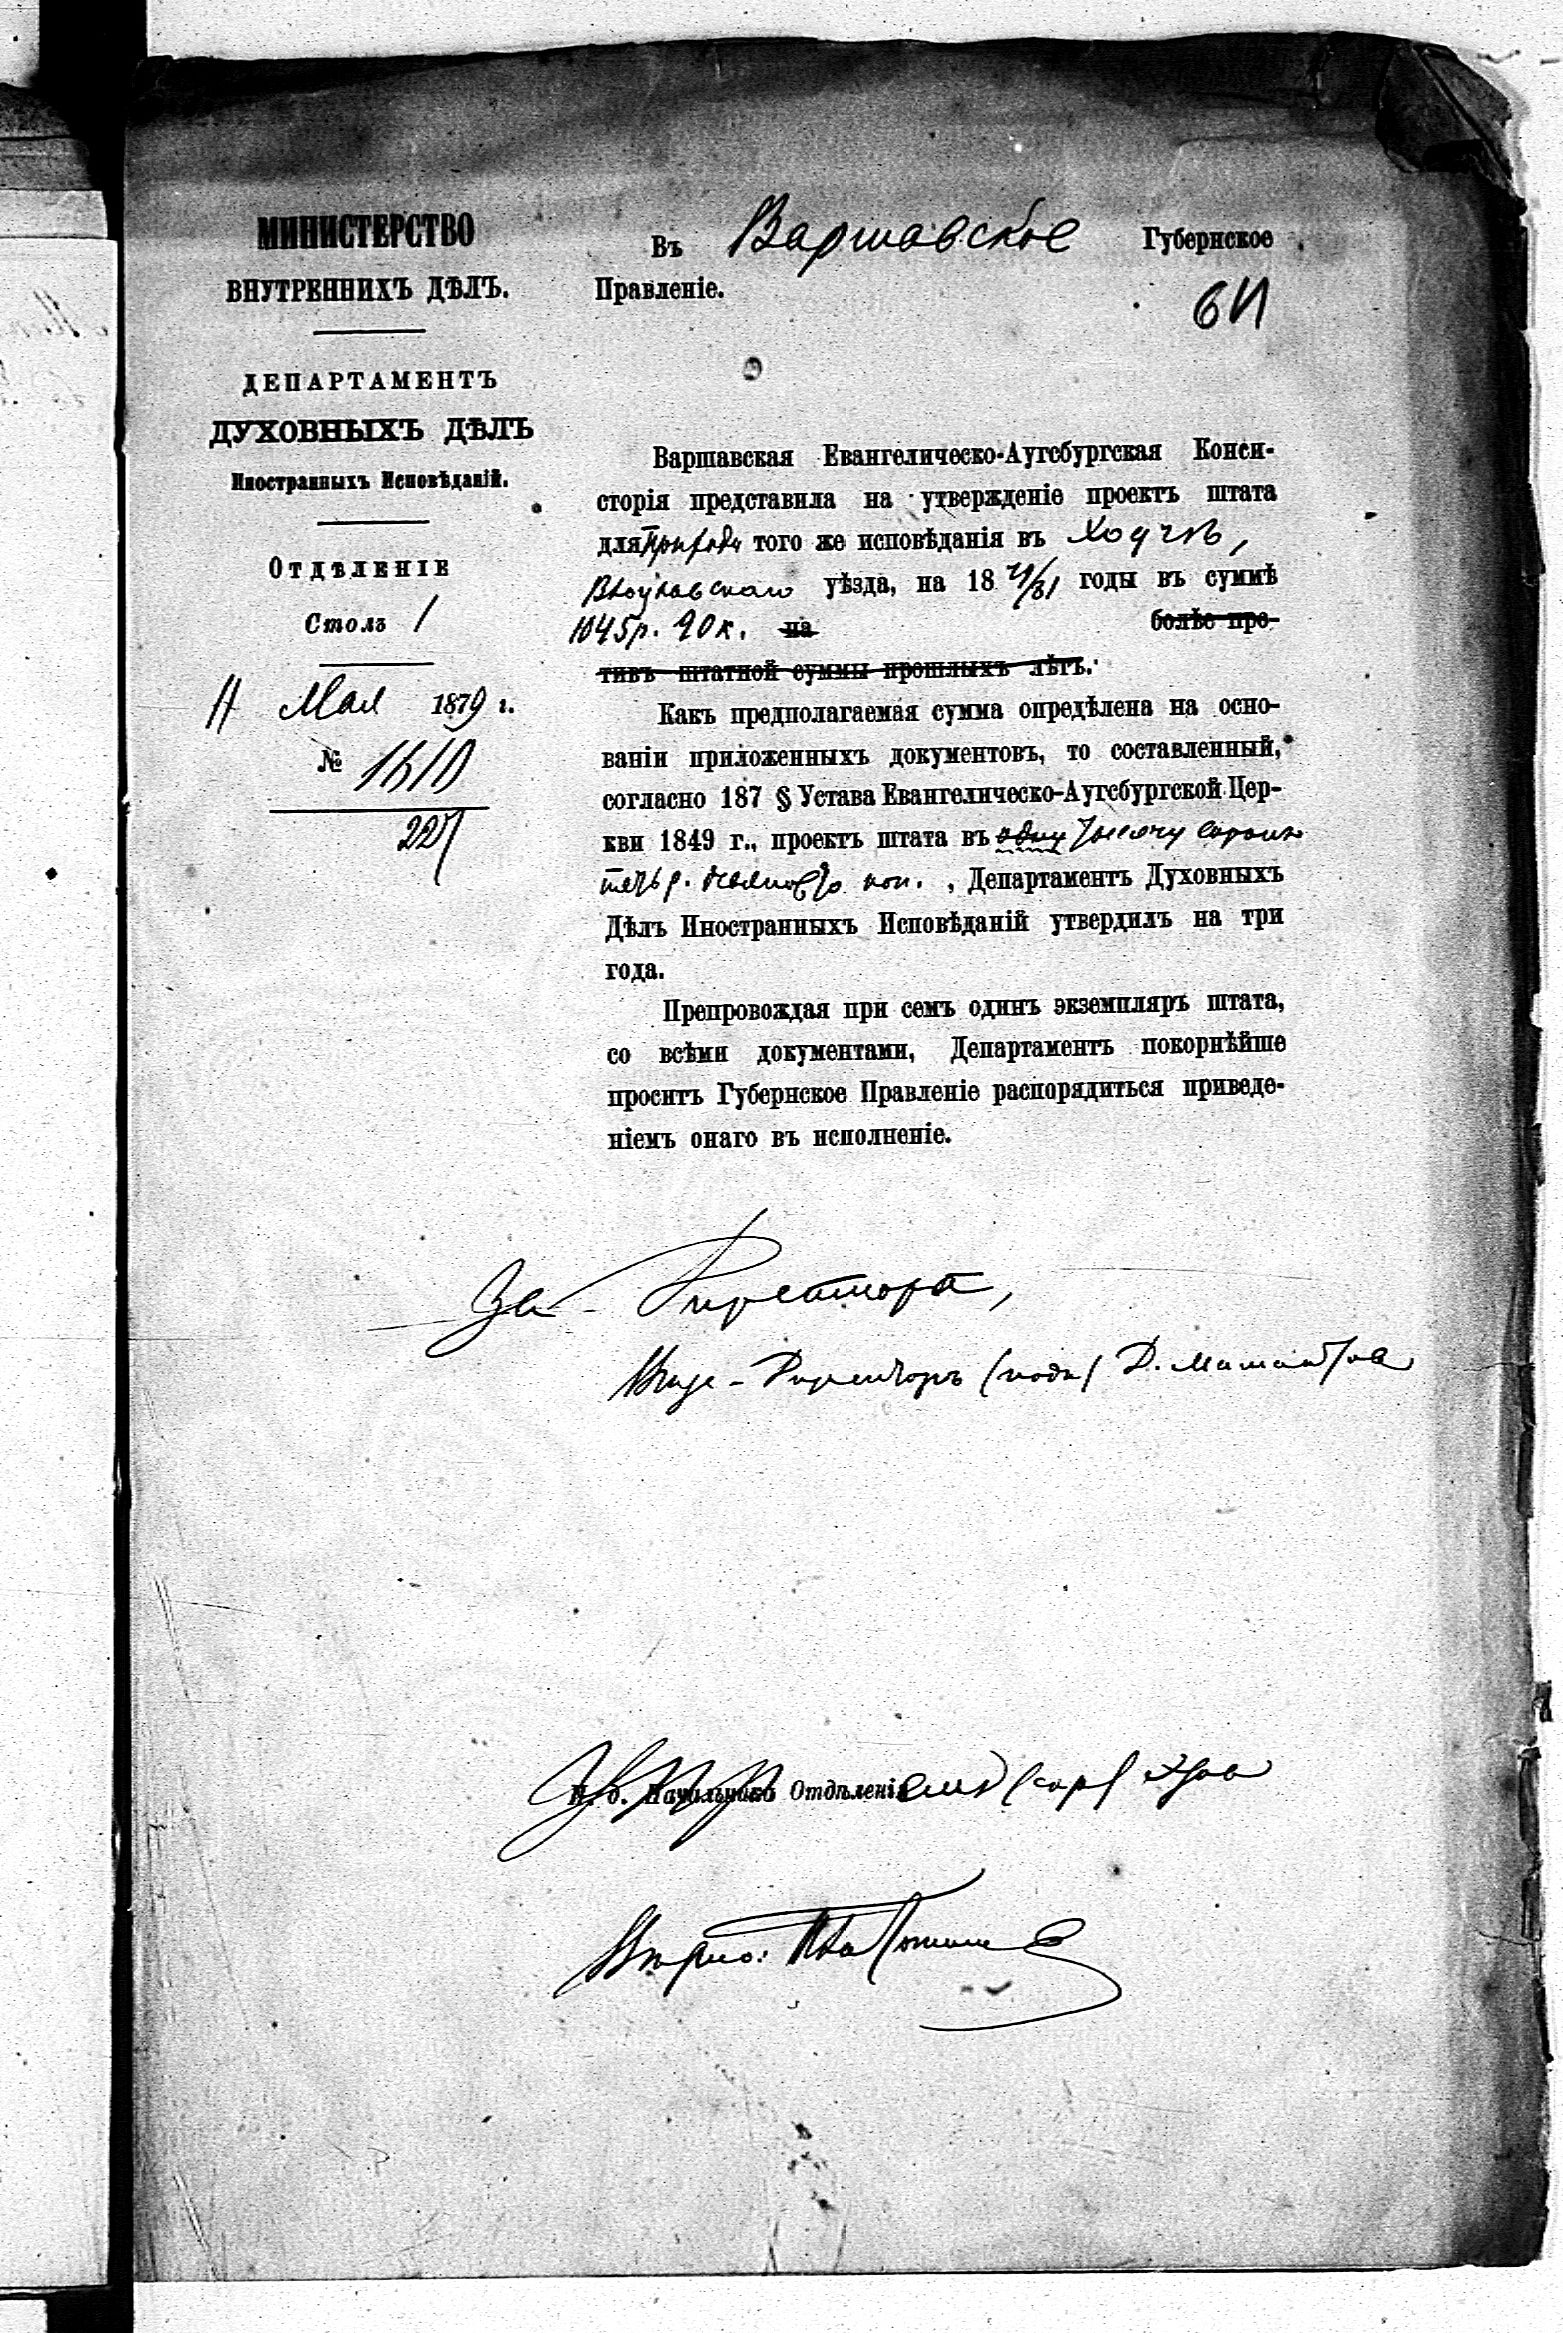 МИНИСТЕРСТВО
ВНУТРЕННИХЪ ДѢЛЪ.
ДЕПАРТАМЕНТЪ
ДУХОВНЫХЪ ДѢЛЪ
Иностранныхъ Исповѣданій.
ОТДѢЛЕНІЕ
Столъ 1
Мая 1879 г.
№
Въ Варшавское Губернское
Правленіе.
Варшавская Евангелическо-Аугсбургская Конси-
сторія представила на утвержденіе проектъ штата
для прихода того же исповѣданія въ Ходчѣ,
Влоцлавскаго уѣзда, на 18 79/81 годы въ суммѣ
1045 р. 90 к. на болѣе про-
тивъ штатной суммы прошлыхъ лѣтъ.
Какъ предполагаемая сумма опредѣлена на осно-
ваніи приложенныхъ документовъ, то составленный,
согласно 187 § Устава Евангелическо-Аугсбургской Цер-
кви 1849 г., проектъ штата въ одну тысячу сорокъ
пять р. девяносто коп., Департаментъ Духовныхъ
Дѣлъ Иностранныхъ Исповѣданій утвердилъ на три
года.
Препровождая при семъ одинъ экземпляръ штата,
со всѣми документами, Департаментъ покорнѣйше
проситъ Губернское Правленіе распорядиться приведе-
ніемъ онаго въ исполненіе.
За Директора,
Вице-Директоръ (подп)
И. д. Начальника Отдѣленія
Вѣрно: